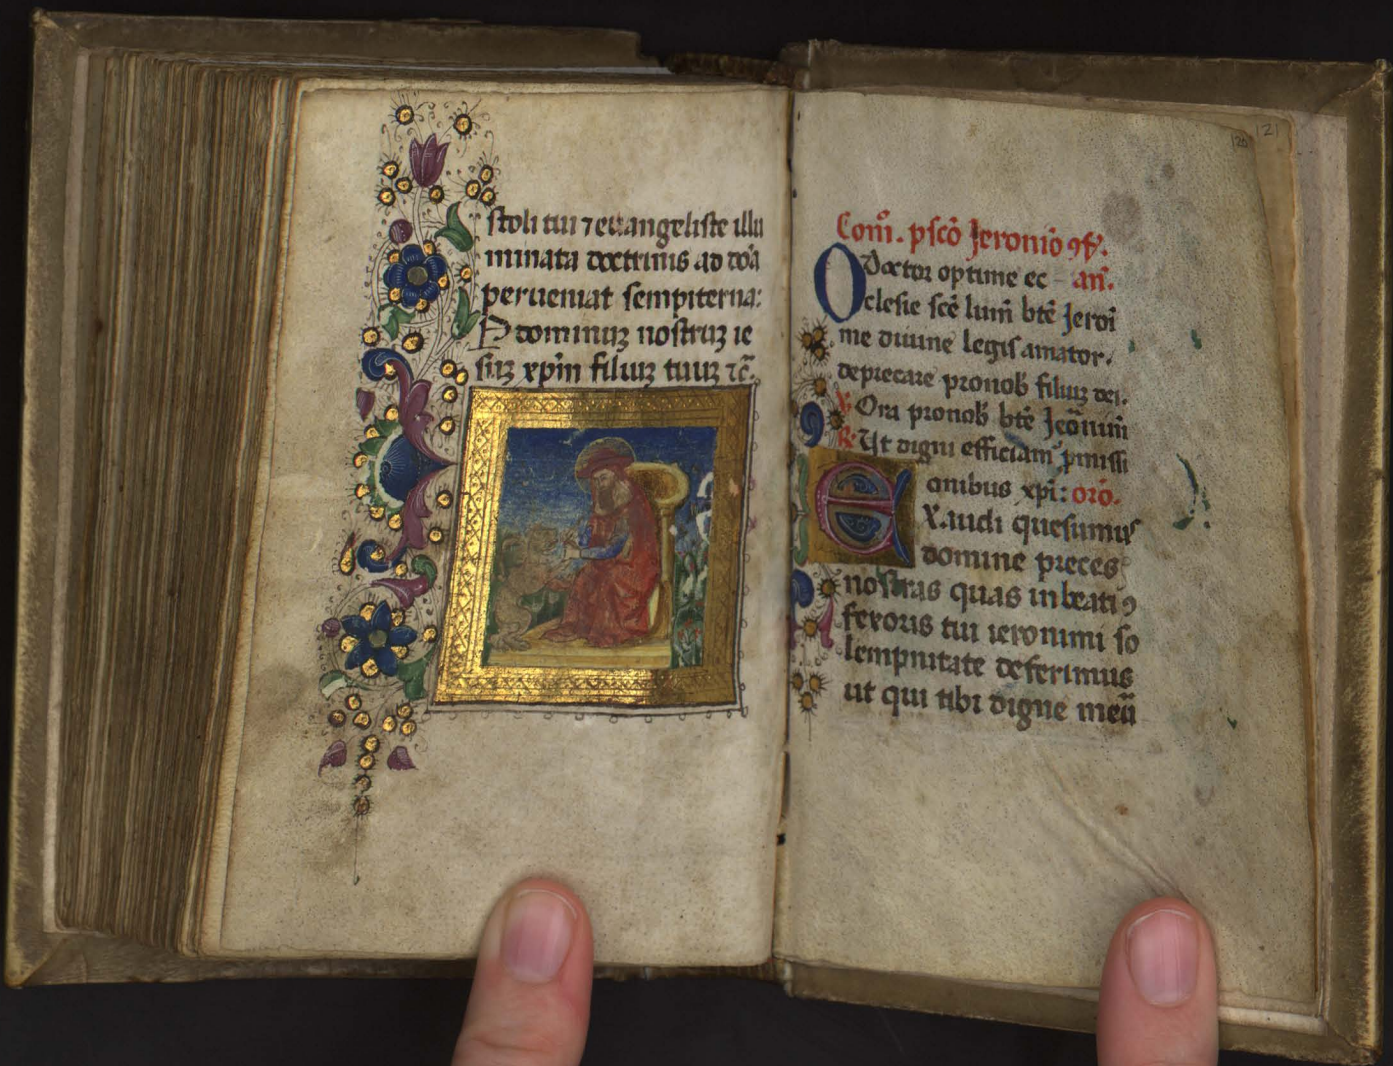 stoli tui ⁊ euangeliste illu
minata doctrinis ad doã
perueniat sempiterna:
P dominuꝫ nostruꝫ ie
suꝫ xp̄m filiuꝫ tuuꝫ ⁊c̄.
120 121
Com̄. p scõ Jeronio ꝯf̄.
O Doctor optime ec an̄.
clesie scē lum̄ btē Jeroĩ
me diuine legis amator.
deprecare pro nob̄ filiuꝫ dei.
V. Ora pro nob̄ btē
R. Ut digni efficiam̄ p̱missi
onibus xp̄i: orō.
EXaudi quesumus
domine preces
nostras quas in beati ꝯ
fexoris tui ieronimi so
lempnitate deferimus
ut qui tibi digne meũ